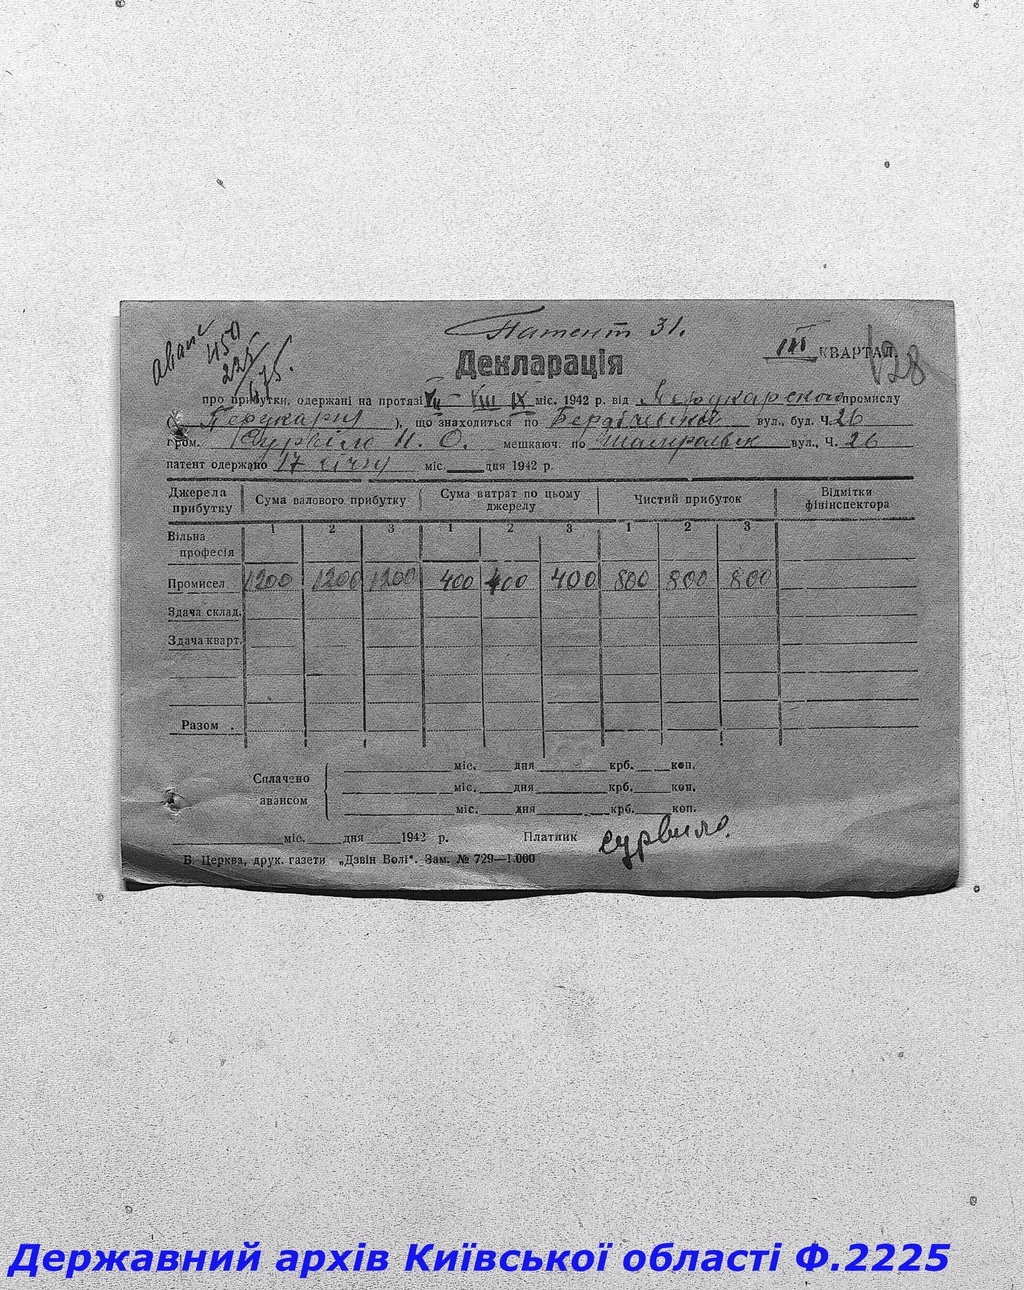 Патент 31.
аванс 450
225
675.
Декларація
III КВАРТАЛ
128
про прибутки, одержані на протязі VII - VIII IX міс. 1942 р. від промислу
( Перукарня ), що знаходиться по Бердічевській вул., буд. Ч. 26
гром. Сурвіло И. О. мешкаюч. по вул., Ч. 26
патент одержано 17 січня міс. дня 1942 р.
Джерела прибутку Сума валового прибутку Сума витрат по цьому джерелу Чистий прибуток Відмітки фінінспектора
1 2 3 1 2 3 1 2 3
Вільна професія
Промисел 1200 1200 1200 400 400 400 800 800 800
Здача склад.
Здача кварт.
Разом .
Сплачено авансом
міс. дня крб. коп.
міс. дня крб. коп.
міс. дня крб. коп.
міс. дня 1942 р. Платник Сурвило.
Б. Церква, друк. газети „Дзвін Волі“. Зам. № 729—1.000
Державний архів Київської області Ф.2225